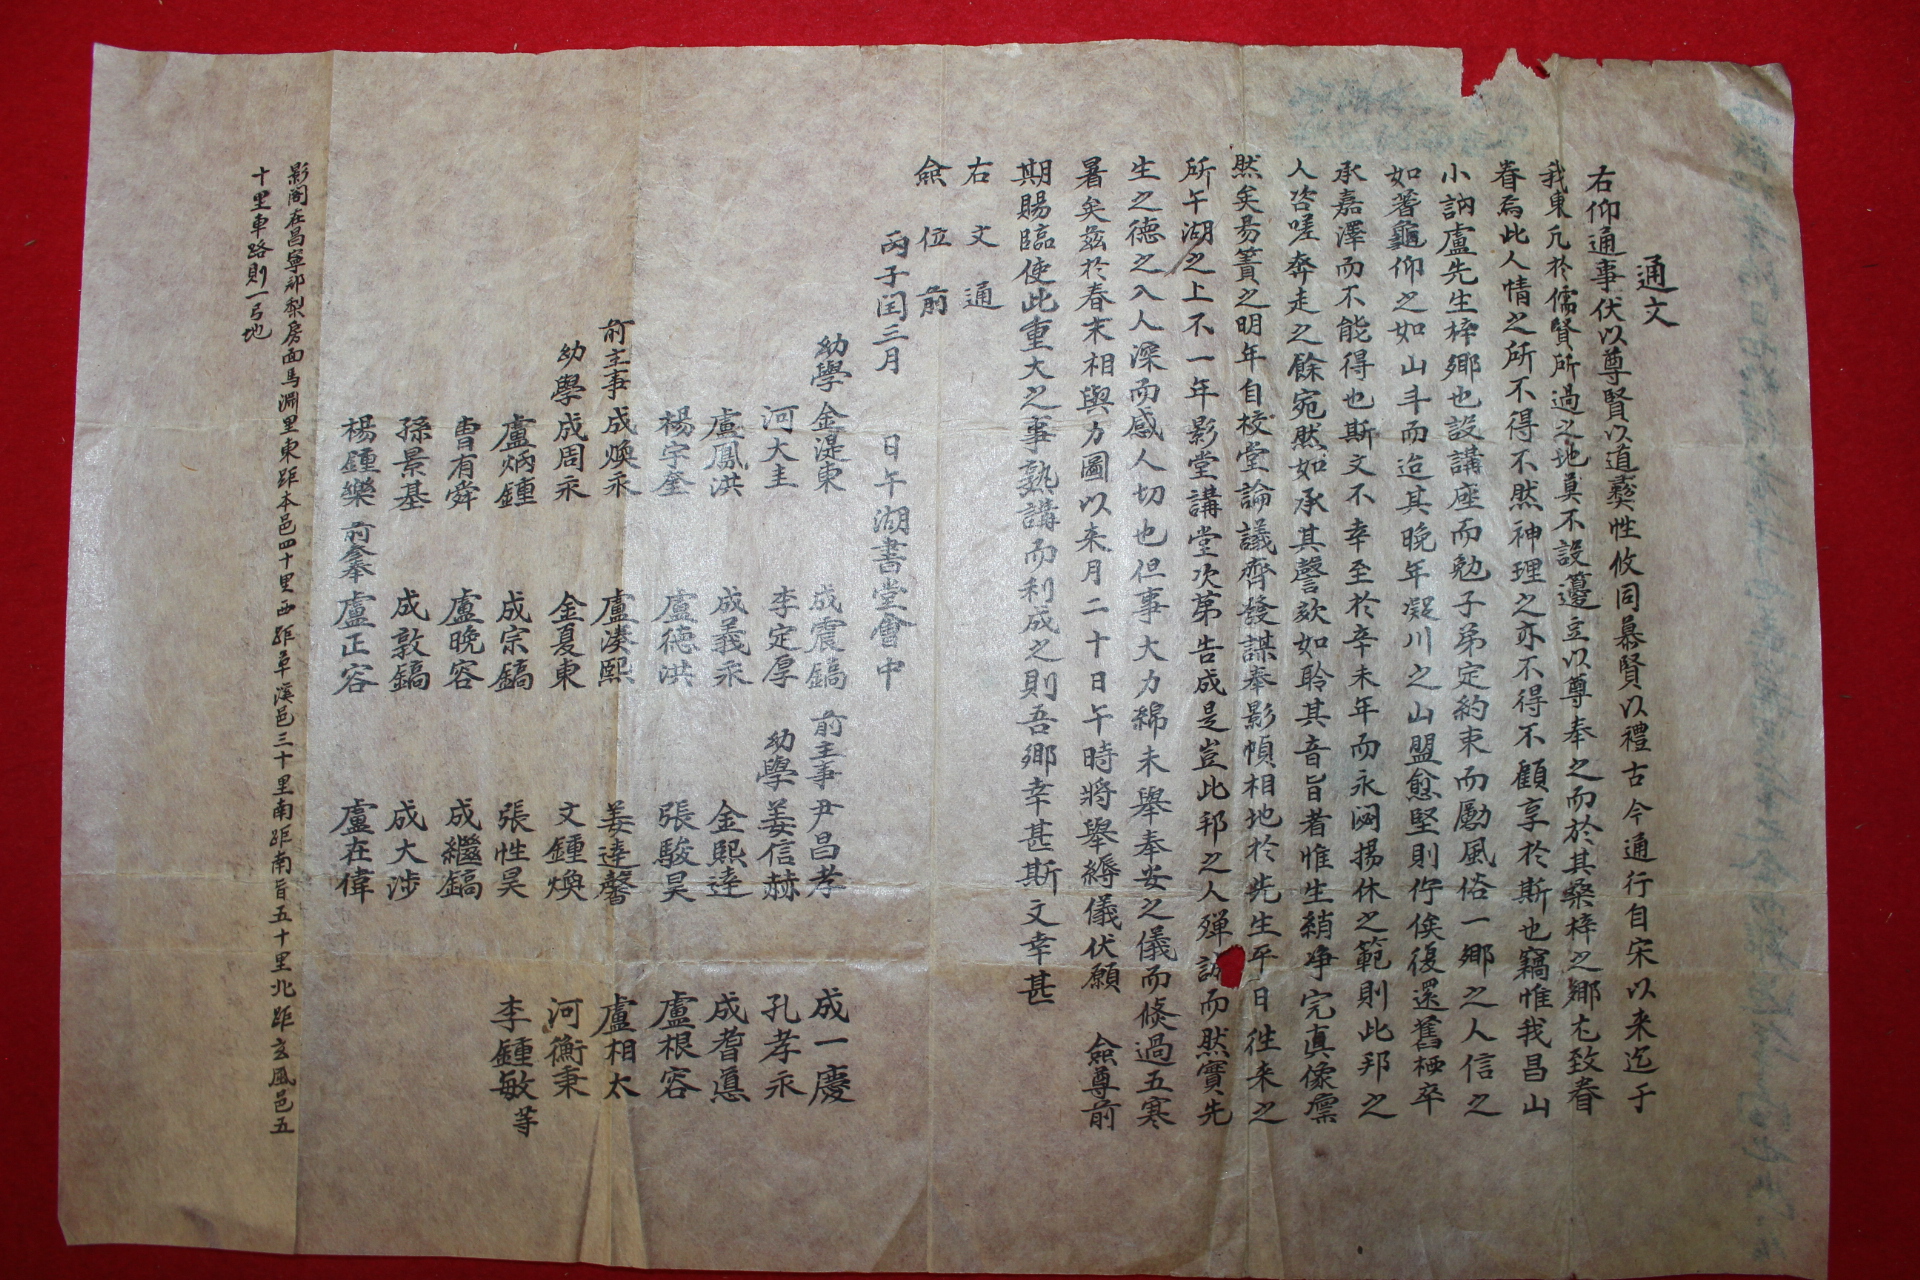 通文
右仰通事伏以尊賢以道彛性攸同慕賢以禮古今通行自宋以来迄于
我東凡於儒賢所過之地莫不設籩豆以尊奉之而於其桑梓之鄕尤致眷
眷焉此人情之所不得不然神理之亦不得不顧享於斯也竊惟我昌山
小訥盧先生梓鄕也設講座而勉子弟定約束而勵風俗一鄕之人信之
如蓍龜仰之如山斗而迨其晚年凝川之山盟愈堅則佇俟後還舊栖卒
承嘉澤而不能得也斯文不幸至於辛未年而永閟揚休之範則此邦之
人咨嗟奔走之餘宛然如承其謦欬如聆其音旨者惟生綃幀完真像凜
然矣昜簀之明年自校堂論議齊發謀奉影幀相地於先生平日徃来之
所午湖之上不一年影堂講堂次第告成是豈此邦之人殫誠而然實先
生之德之入人深而感人切也但事大力綿未舉奉安之儀而倏過五寒
暑矣兹於春末相與力圖以来月二十日午時將舉縟儀伏願 僉尊前
期賜臨使此重大之事熟講而利成之則吾鄉幸甚斯文幸甚
右文通
僉位前
丙子閏三月 日午湖書堂會中
幼學 金湜東 成震鎬 前主事 尹昌孝 成一慶
河大圭 李定厚 幼學 姜信赫 孔孝永
盧鳳洪 成義永 金熙達 成耆悳
楊宇奎 盧德洪 張駿昊 盧根容
前主事 成煥永 盧湊熙 姜達馨 盧相太
幼學 成周永 金夏東 文鍾煥 河衡秉
盧炳鍾 成宗鎬 張性昊 李鍾敏 等
曺有舜 盧晚容 成繼鎬
孫景基 成敦鎬 成大涉
楊鍾樂 前參奉 盧正容 盧在偉
影閣在昌寧郡梨房面馬淵里東距本邑四十里西距草溪邑三十里南距南旨五十里北距玄風邑五
十里車路則一弓地